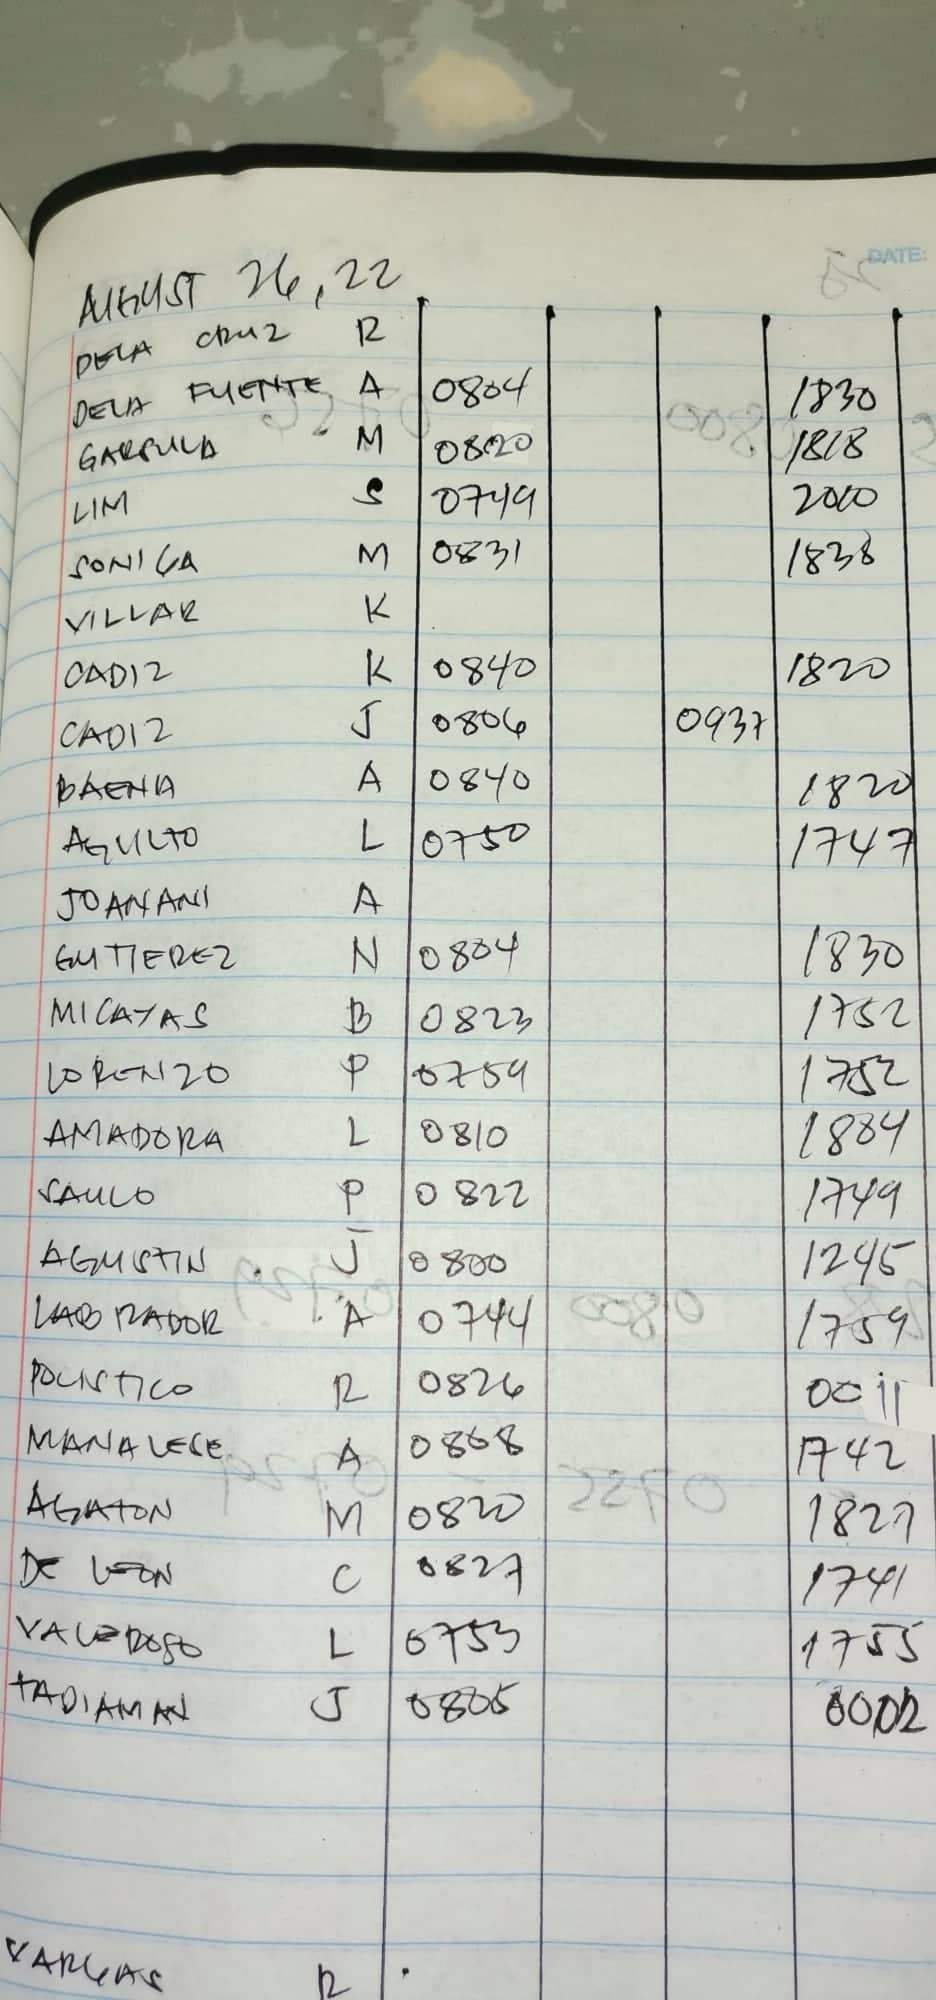 DATE:
AUGUST 26, 22
DELA CRUZ R
DELA FUENTE A 0804 1830
GARSULA M 0820 1818
LIM S 0749 2000
SONIGA M 0831 1838
VILLAR K
CADIZ K 0840 1820
CADIZ J 0806 0937
BAENA A 0840 1820
AGUILTO L 0750 1747
JOANANI A
GUTIEREZ N 0804 1830
MICAYAS B 0823 1752
LORENZO P 0759 1752
AMADORA L 0810 1884
SAULO P 0822 1749
AGUSTIN J 0800 1245
LABRADOR A 0744 1759
POLISTICO R 0826 0011
MANALESE A 0808 1742
AGATON M 0820 1827
DE LEON C 0827 1741
VALEROSO L 0753 1755
TADIAMAN J 0805 0002
VARGAS R